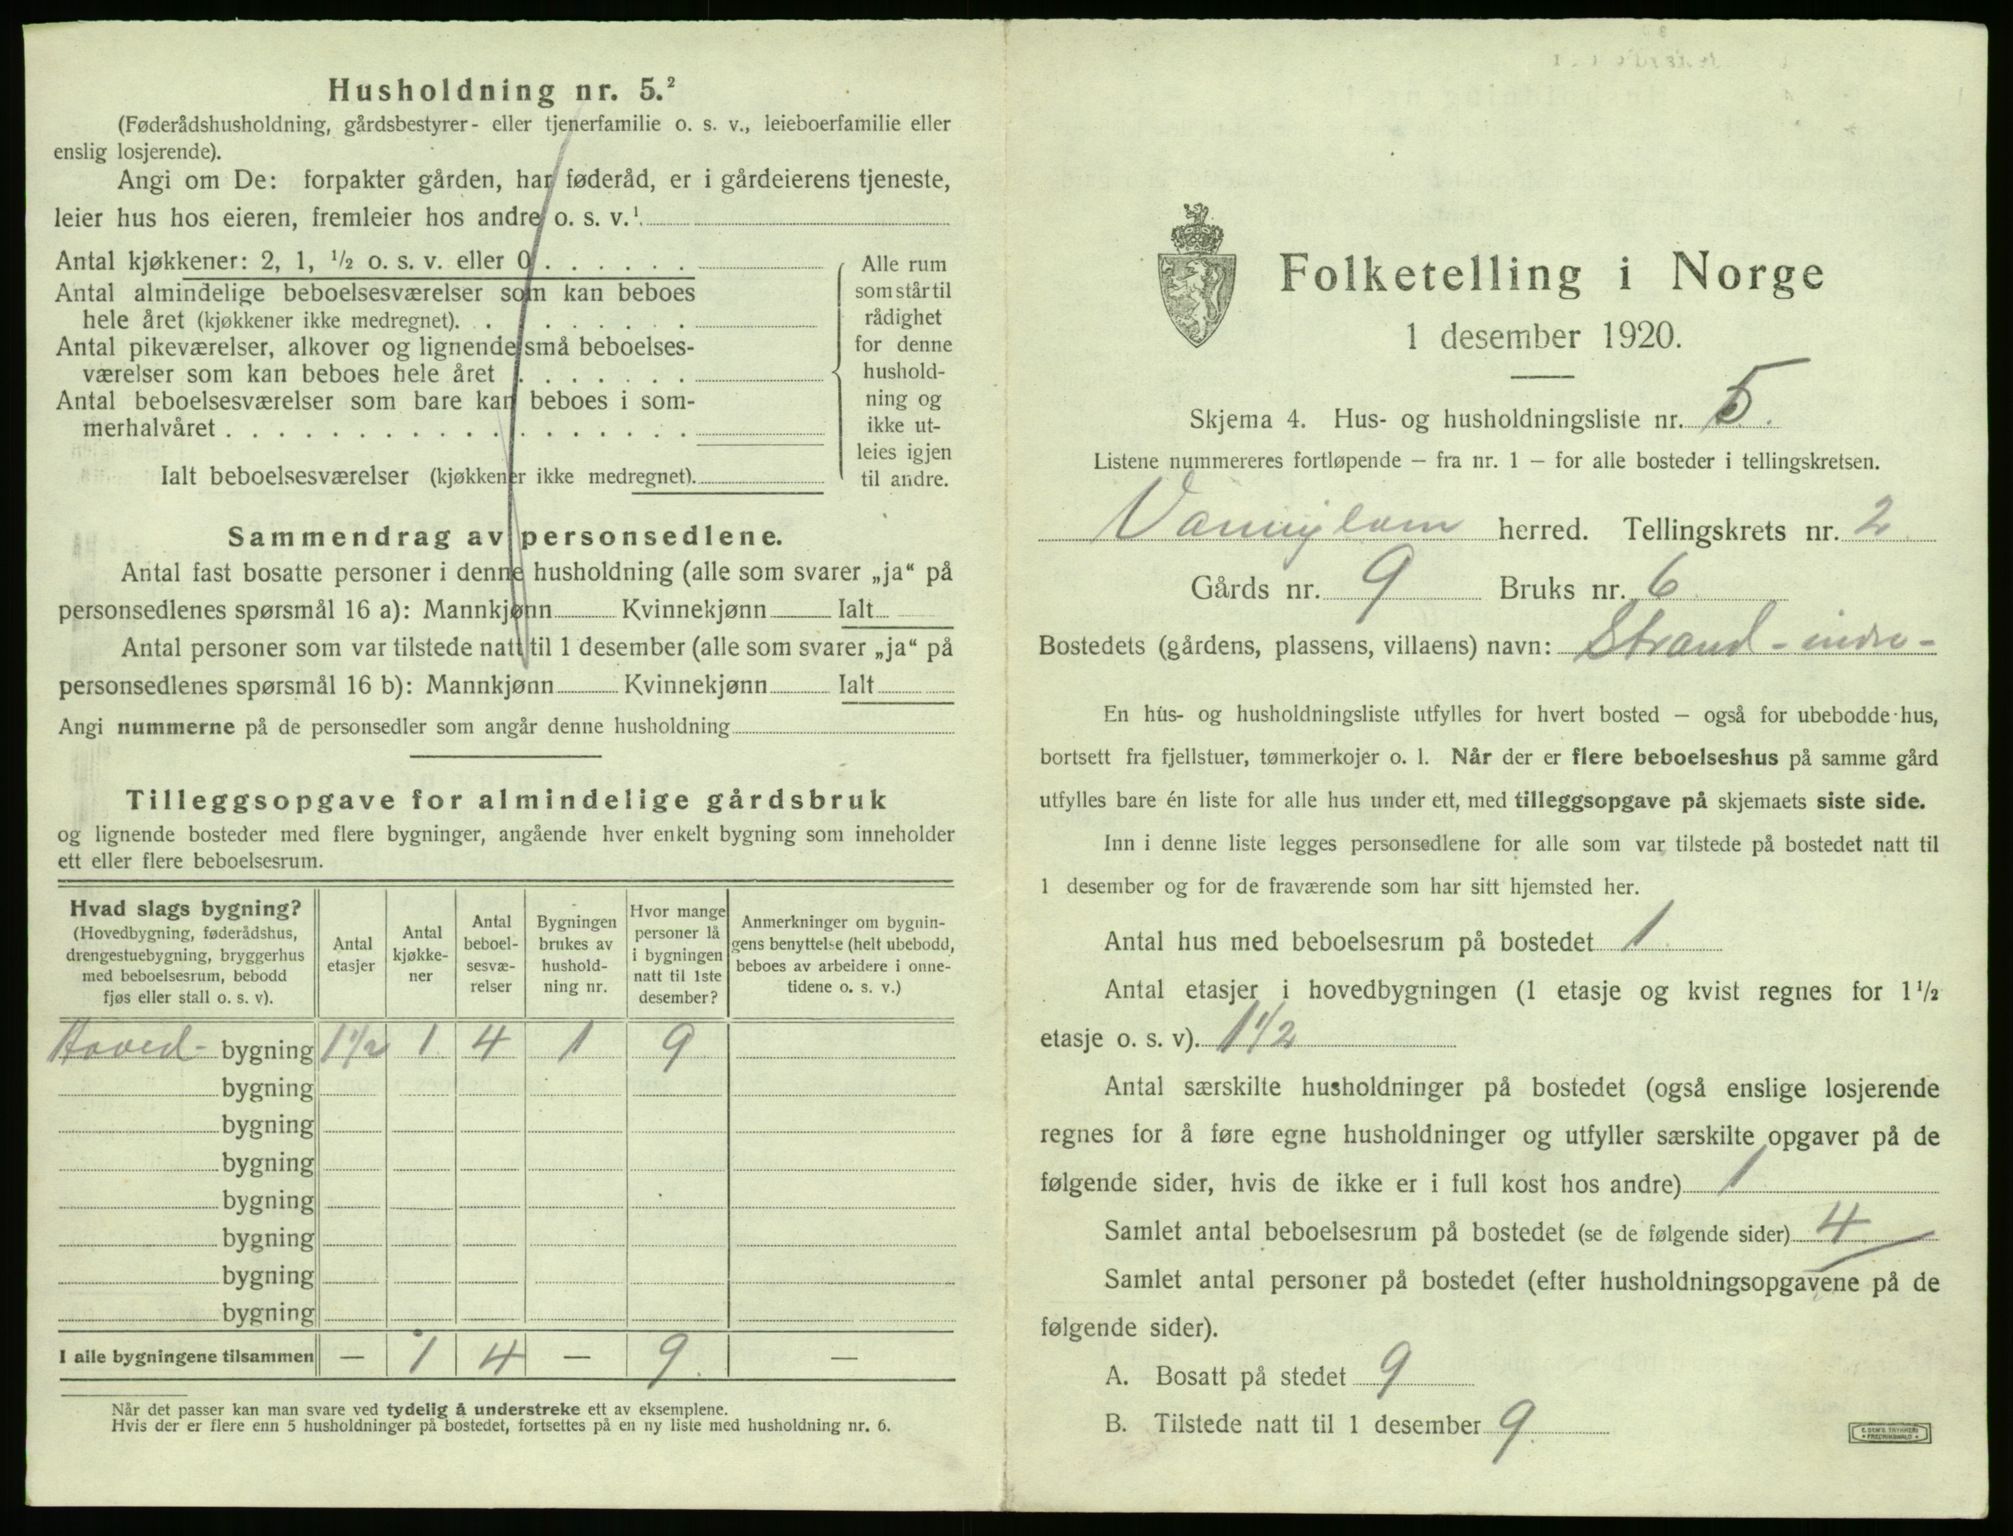 Husholdning nr. 5.²
(Føderådshusholdning, gårdsbestyrer- eller tjenerfamilie o. s. v., leieboerfamilie eller
enslig losjerende).
Angi om De: forpakter gården, har føderåd, er i gårdeierens tjeneste,
leier hus hos eieren, fremleier hos andre o. s. v.¹
Antal kjøkkener: 2, 1, ½ o. s. v. eller 0
Antal almindelige beboelsesværelser som kan beboes
hele året (kjøkkener ikke medregnet).
Antal pikeværelser, alkover og lignende små beboelses-
værelser som kan beboes hele året
Antal beboelsesværelser som bare kan beboes i som-
merhalvåret
Ialt beboelsesværelser (kjøkkener ikke medregnet).
Alle rum
som står til
rådighet
for denne
hushold-
ning og
ikke ut-
leies igjen
til andre.
Sammendrag av personsedlene.
Antal fast bosatte personer i denne husholdning (alle som svarer „ja“ på
personsedlenes spørsmål 16 a): Mannkjønn Kvinnekjønn Ialt
Antal personer som var tilstede natt til 1 desember (alle som svarer „ja“ på
personsedlenes spørsmål 16 b): Mannkjønn Kvinnekjønn Ialt
Angi nummerne på de personsedler som angår denne husholdning
Tilleggsopgave for almindelige gårdsbruk
og lignende bosteder med flere bygninger, angående hver enkelt bygning som inneholder
ett eller flere beboelsesrum.
Hvad slags bygning?
(Hovedbygning, føderådshus,
drengestuebygning, bryggerhus
med beboelsesrum, bebodd
fjøs eller stall o. s. v).
Antal
etasjer
Antal
kjøkke-
ner
Antal
beboel-
sesvæ-
relser
Bygningen
brukes av
hushold-
ning nr.
Hvor mange
personer lå
i bygningen
natt til 1ste
desember?
Anmerkninger om bygnin-
gens benyttelse (helt ubebodd,
beboes av arbeidere i onne-
tidene o. s. v.)
Hoved- bygning 1½ 1 4 1 9
bygning
bygning
bygning
bygning
bygning
bygning
bygning
I alle bygningene tilsammen — 1 4 — 9. —
Når det passer kan man svare ved tydelig å understreke ett av eksemplene.
Hvis der er flere enn 5 husholdninger på bostedet, fortsettes på en ny liste med husholdning nr. 6.
Folketelling i Norge
1 desember 1920.
Skjema 4. Hus- og husholdningsliste nr. 5.
Listene nummereres fortløpende — fra nr. 1 — for alle bosteder i tellingskretsen.
herred. Tellingskrets nr. 2
Gårds nr. 9 Bruks nr. 6
Bostedets (gårdens, plassens, villaens) navn: Strand - indre -
En hus- og husholdningsliste utfylles for hvert bosted — også for ubebodde hus,
bortsett fra fjellstuer, tømmerkojer o. l. Når der er flere beboelseshus på samme gård
utfylles bare én liste for alle hus under ett, med tilleggsopgave på skjemaets siste side.
Inn i denne liste legges personsedlene for alle som var tilstede på bostedet natt til
1 desember og for de fraværende som har sitt hjemsted her.
Antal hus med beboelsesrum på bostedet 1
Antal etasjer i hovedbygningen (1 etasje og kvist regnes for 1½
etasje o. s. v). 1½
Antal særskilte husholdninger på bostedet (også enslige losjerende
regnes for å føre egne husholdninger og utfyller særskilte opgaver på de
følgende sider, hvis de ikke er i full kost hos andre) 1
Samlet antal beboelsesrum på bostedet (se de følgende sider) 4
Samlet antal personer på bostedet (efter husholdningsopgavene på de
følgende sider).
A. Bosatt på stedet 9
B. Tilstede natt til 1 desember 9.